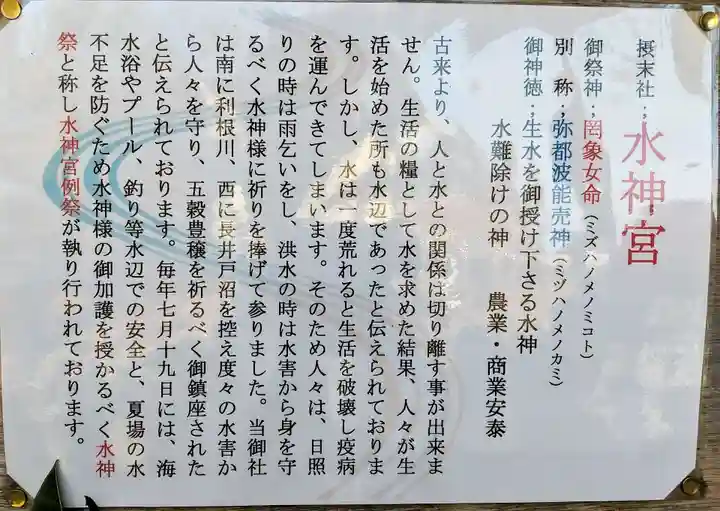 摂末社；水神宮
御祭神；罔象女命（ミズハノメノミコト）
別　称；弥都波能売神（ミツハノメノカミ）
御神徳；生水を御授け下さる水神
水難除けの神　農業・商業安泰
古来より、人と水との関係は切り離す事が出来ま
せん。生活の糧として水を求めた結果、人々が生
活を始めた所も水辺であったと伝えられておりま
す。しかし、水は一度荒れると生活を破壊し疫病
を運んできてしまいます。そのため人々は、日照
りの時は雨乞いをし、洪水の時は水害から身を守
るべく水神様に祈りを捧げて参りました。当御社
は南に利根川、西に長井戸沼を控え度々の水害か
ら人々を守り、五穀豊穣を祈るべく御鎮座された
と伝えられております。毎年七月十九日には、海
水浴やプール、釣り等水辺での安全と、夏場の水
不足を防ぐため水神様の御加護を授かるべく水神
祭と称し水神宮例祭が執り行われております。